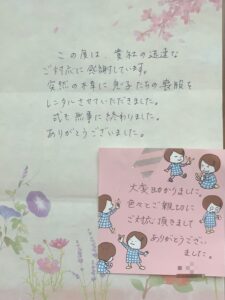 この度は、貴社の迅速な
ご対応に感謝しています。
突然の不幸に息子たちの喪服を
レンタルさせていただきました。
式も無事に終わりました。
ありがとうございました。
大変助かりました。
色々とご親切に
ご対応頂きまして
ありがとうござい
ました。